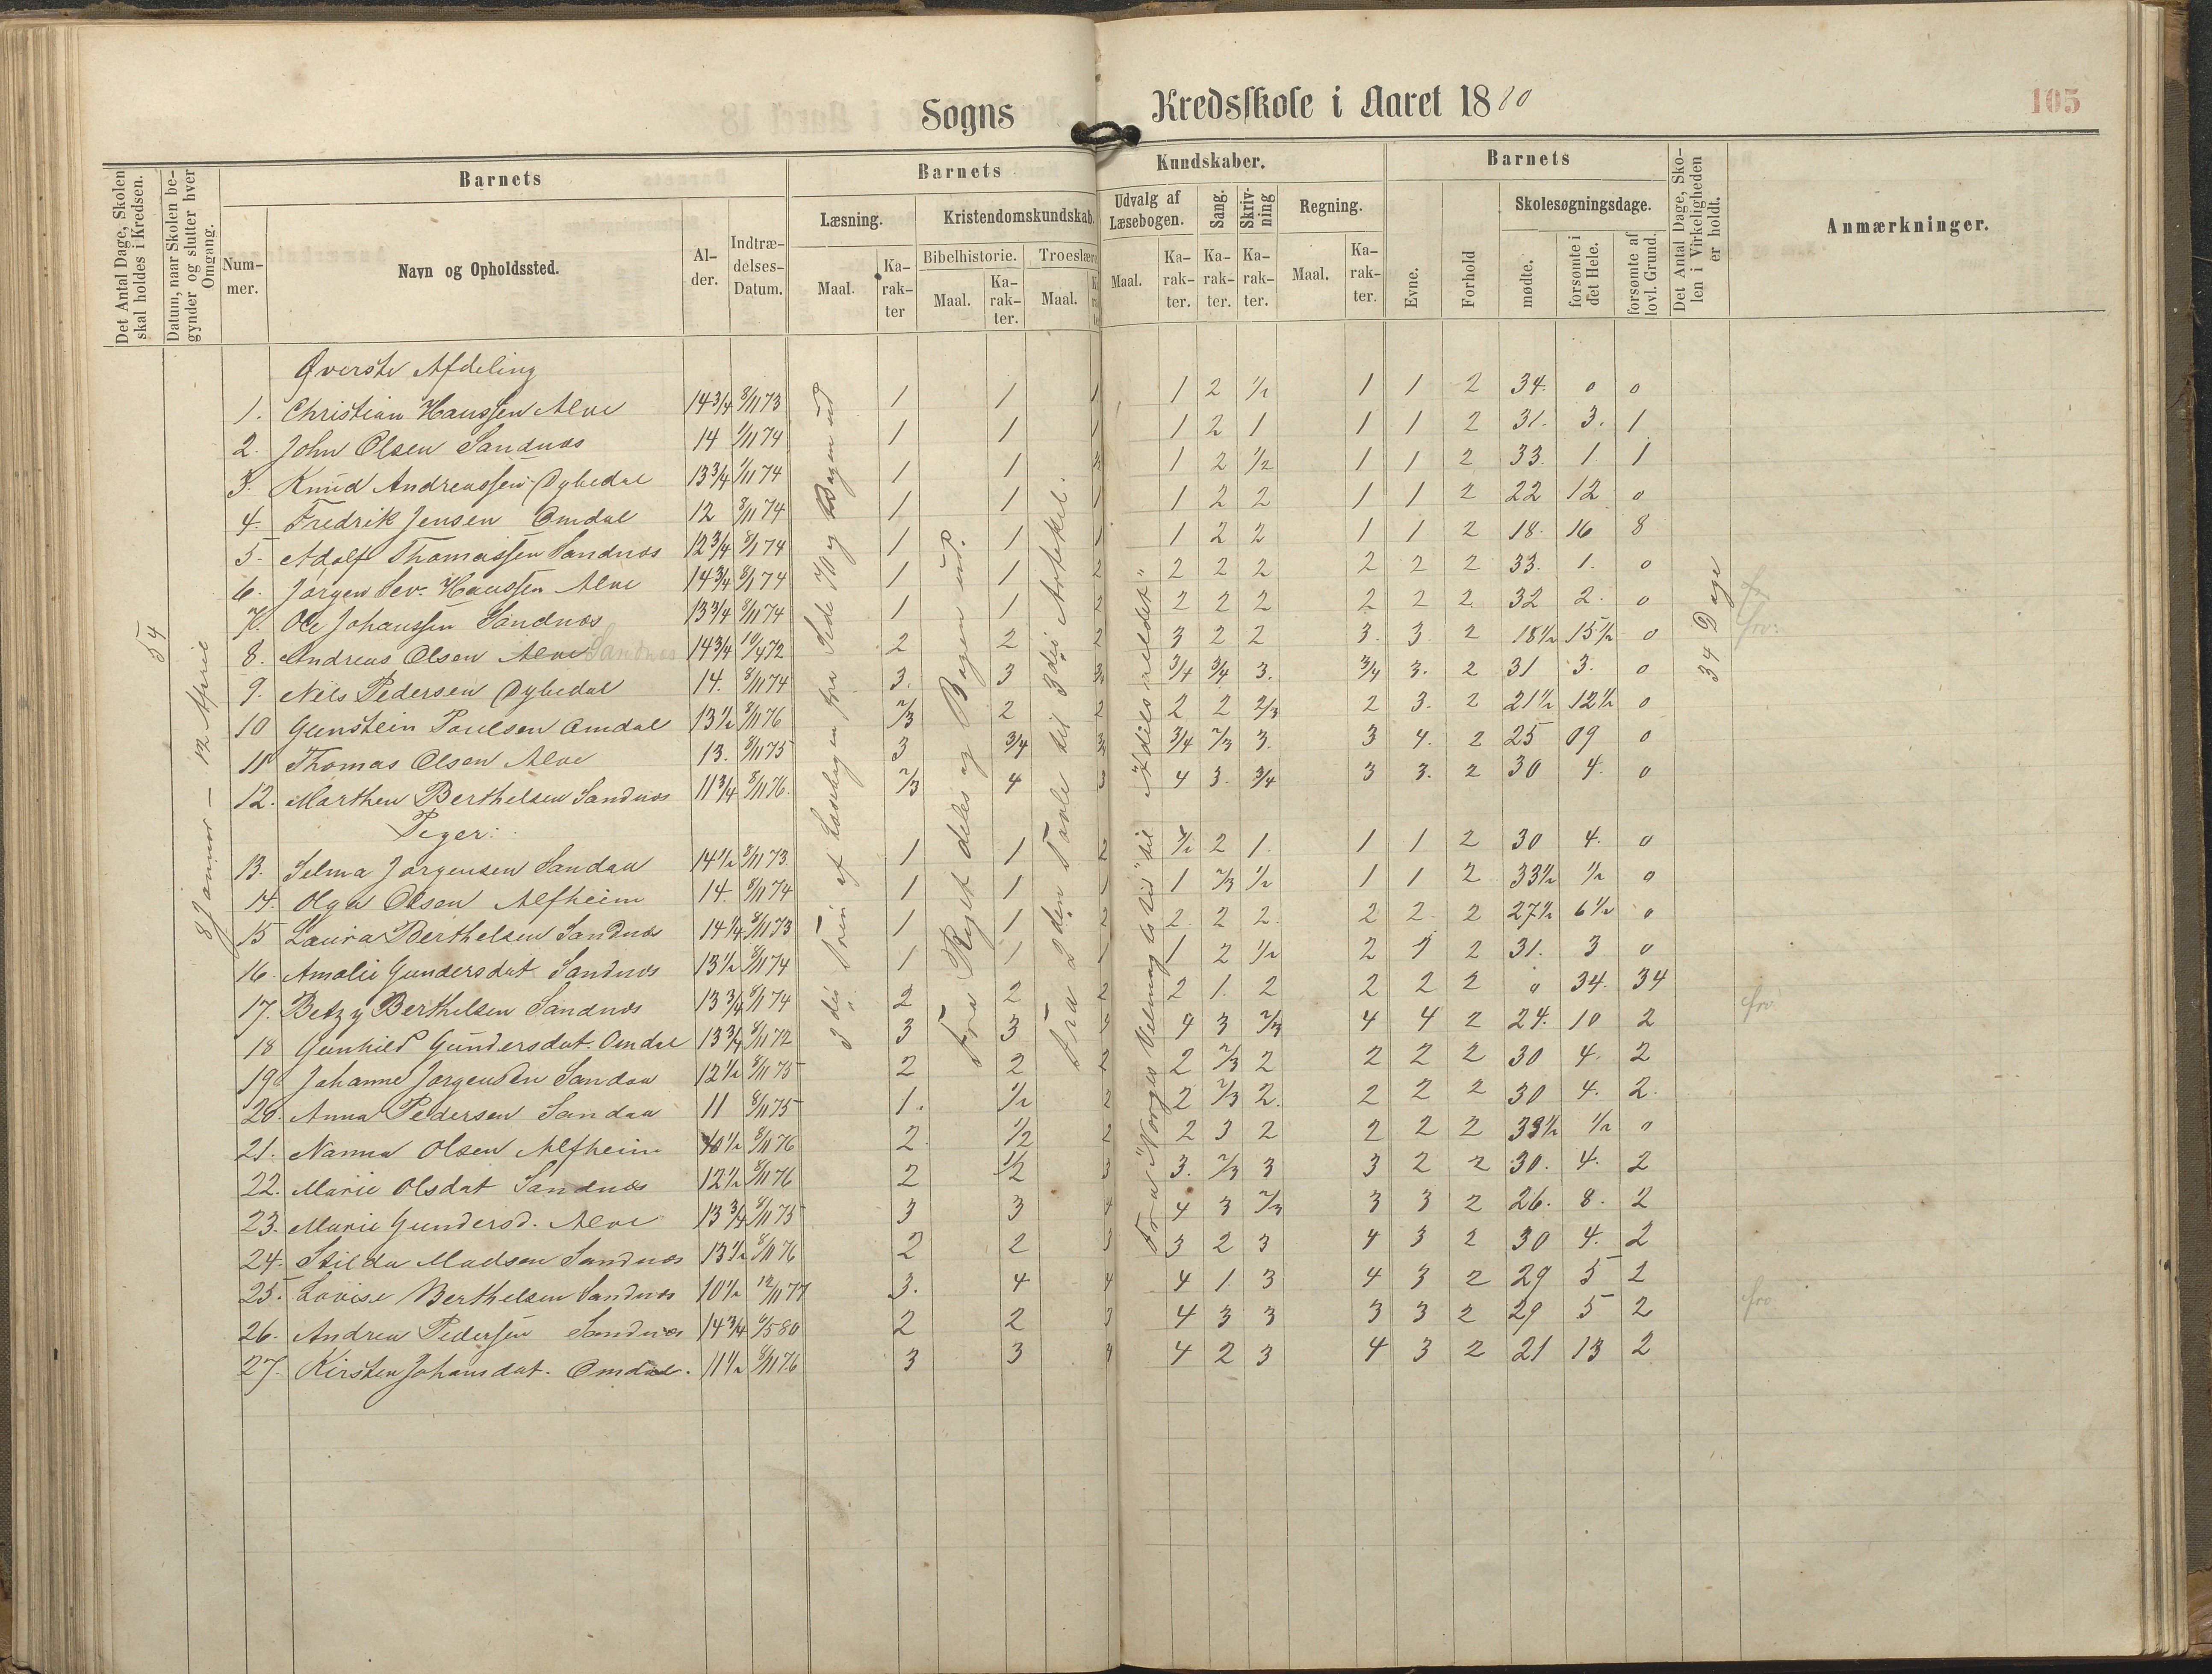 Sogns Kredsskole i Aaret 1880
105
Det Antal Dage, Skolen skal holdes i Kredsen.
Datum, naar Skolen begynder og slutter hver Omgang.
Barnets
Nummer.
Navn og Opholdssted.
Alder.
Indtrædelses-Datum.
Barnets Kundskaber.
Læsning.
Maal.
Karakter
Kristendomskundskab.
Bibelhistorie.
Maal.
Karakter.
Troeslære
Maal.
Udvalg af Læsebogen.
Maal.
Karakter.
Sang.
Karakter.
Skrivning
Karakter.
Regning.
Maal.
Karakter.
Barnets
Evne.
Forhold
Skolesøgningsdage.
mødte.
forsømte i det Hele.
forsømte af lovl. Grund.
Det Antal Dage, Skolen i Virkeligheden er holdt.
Anmærkninger.
54
8 Januar – 12 April
34 Dage
Øverste Afdeling
1. Christian Hanssen Alve 14 3/4 8/11 73 1 1 1 1 2 1/2 1 1 2 34. 0 0
2. John Olsen Sandnæs 14 1/11 74 1 1 1 1 2 1 1 1 2 31. 3. 1
3. Knud Andreassen Dybedal 13 3/4 1/11 74 1 1 1 2 1/2 1 1 2 33. 1 1
4. Fredrik Jensen Omdal 12 8/11 74 1 1 1 1 2 2 1 1 2 22 12 0
5. Adolf Thomassen Sandnæs 12 3/4 8/1 74 1 1 1 1 2 2 1 1 2 18. 16 8
6. Jørgen Sev. Hanssen Alve 14 3/4 8/1 74 1 1 2 2 2 2 2 2 2 33. 1. 0
7. Ole Johanssen Sandnæs 13 3/4 8/11 74 1 1 2 2 2 2 2 2 2 32 2. 0
8. Andreas Olsen Alve Sandnæs 14 3/4 10/4 72 2 2 2 3 2 2 3. 3. 2 18 1/2 15 1/2 0
9. Niels Pedersen Dybedal 14. 8/11 74 3. 3 3/4 3/4 3/4 3. 3/4 3. 2 31 3. 0
10 Gunstein Poulsen Omdal 13 1/2 8/11 76 2/3 2 2 2 2 2/3 2 3. 2 21 1/2 12 1/2 0
11 Thomas Olsen Alve 13. 8/11 75 3 3/4 3/4 3/4 2/3 3. 3 4. 2 25 09 0
12. Marthen Berthelsen Sandnæs 11 3/4 8/11 76. 2/3 4 3 4 3. 3/4 3 3. 2 30 4. 0
Piger:
13. Selma Jørgensen Sandaa 14 1/2 8/11 73 1 1 2 2 1. 1 1 2 30 4. 0
14. Olga Olsen Alfheim 14. 8/11 74 1 1 1 1 2/3 1/2 1 1 2 33 1/2 1/2 0
15 Laura Berthelsen Sandnæs 14 1/4 8/11 73 1 1 2 2. 2 2. 2 2. 2 27 1/2 6 1/2 0
16. Amalie Gundersdat. Sandnæs 13 1/2 8/11 74 1 1 1 1 2 1/2 2 2 31. 3 0
17. Betzy Berthelsen Sandnæs 13 3/4 8/1 74 2 2 2 2 1. 2 2 2 2 0 34. 34
18 Gunhild Gundersdat. Omdal 13 3/4 8/11 72 3 3 4 3 2/3 4 4 2 24. 10 2
19 Johanne Jørgensen Sandaa 12 1/2 8/11 75 2 2 2 2 2/3 2 2 2 2 30 4. 2
20. Anna Pedersen Sandaa 11 8/11 75 1. 1/2 2 2 2/3 2. 2 2 2 30 4. 2.
21. Nanna Olsen Alfheim 10 1/2 8/11 76 2. 1/2 2 2 3 2 2 2 2 33 1/2 1/2 0
22. Marie Olsdat Sandnæs 12 1/2 8/11 76 2 1/2 3 3. 2/3 3 3 2 2 30. 4. 2
23. Marie Gundersd. Alve 13 3/4 8/11 75 3 3 4 4 3 2/3 3 3 2 26. 8. 2
24. Hilda Madsen Sandnæs 13 1/2 8/11 76 2 2 3 3 2 3 4 3 2 30 4. 2
25. Lovise Berthelsen Sandnæs 10 1/2 12/11 77 3. 4 4 4 1 3 4 3 2 29 5 2
26. Andrea Pedersen Sandnæs 14 3/4 6/5 80 2 2 3 4 3 3 3 3 2 29 5 2
27. Kirsten Johansdat. Omdal. 11 1/2 8/11 76 3 3 4 4 2 3 4 3 2 21 13 2
3die Trin af Læsebogen fra Side 70 og Bogen ud
Fra Riget deles og Bogen ud.
Fra 2den Tavle til 3die Artikel.
Fra "Norges Velmagtstid" til "Adils ældet"